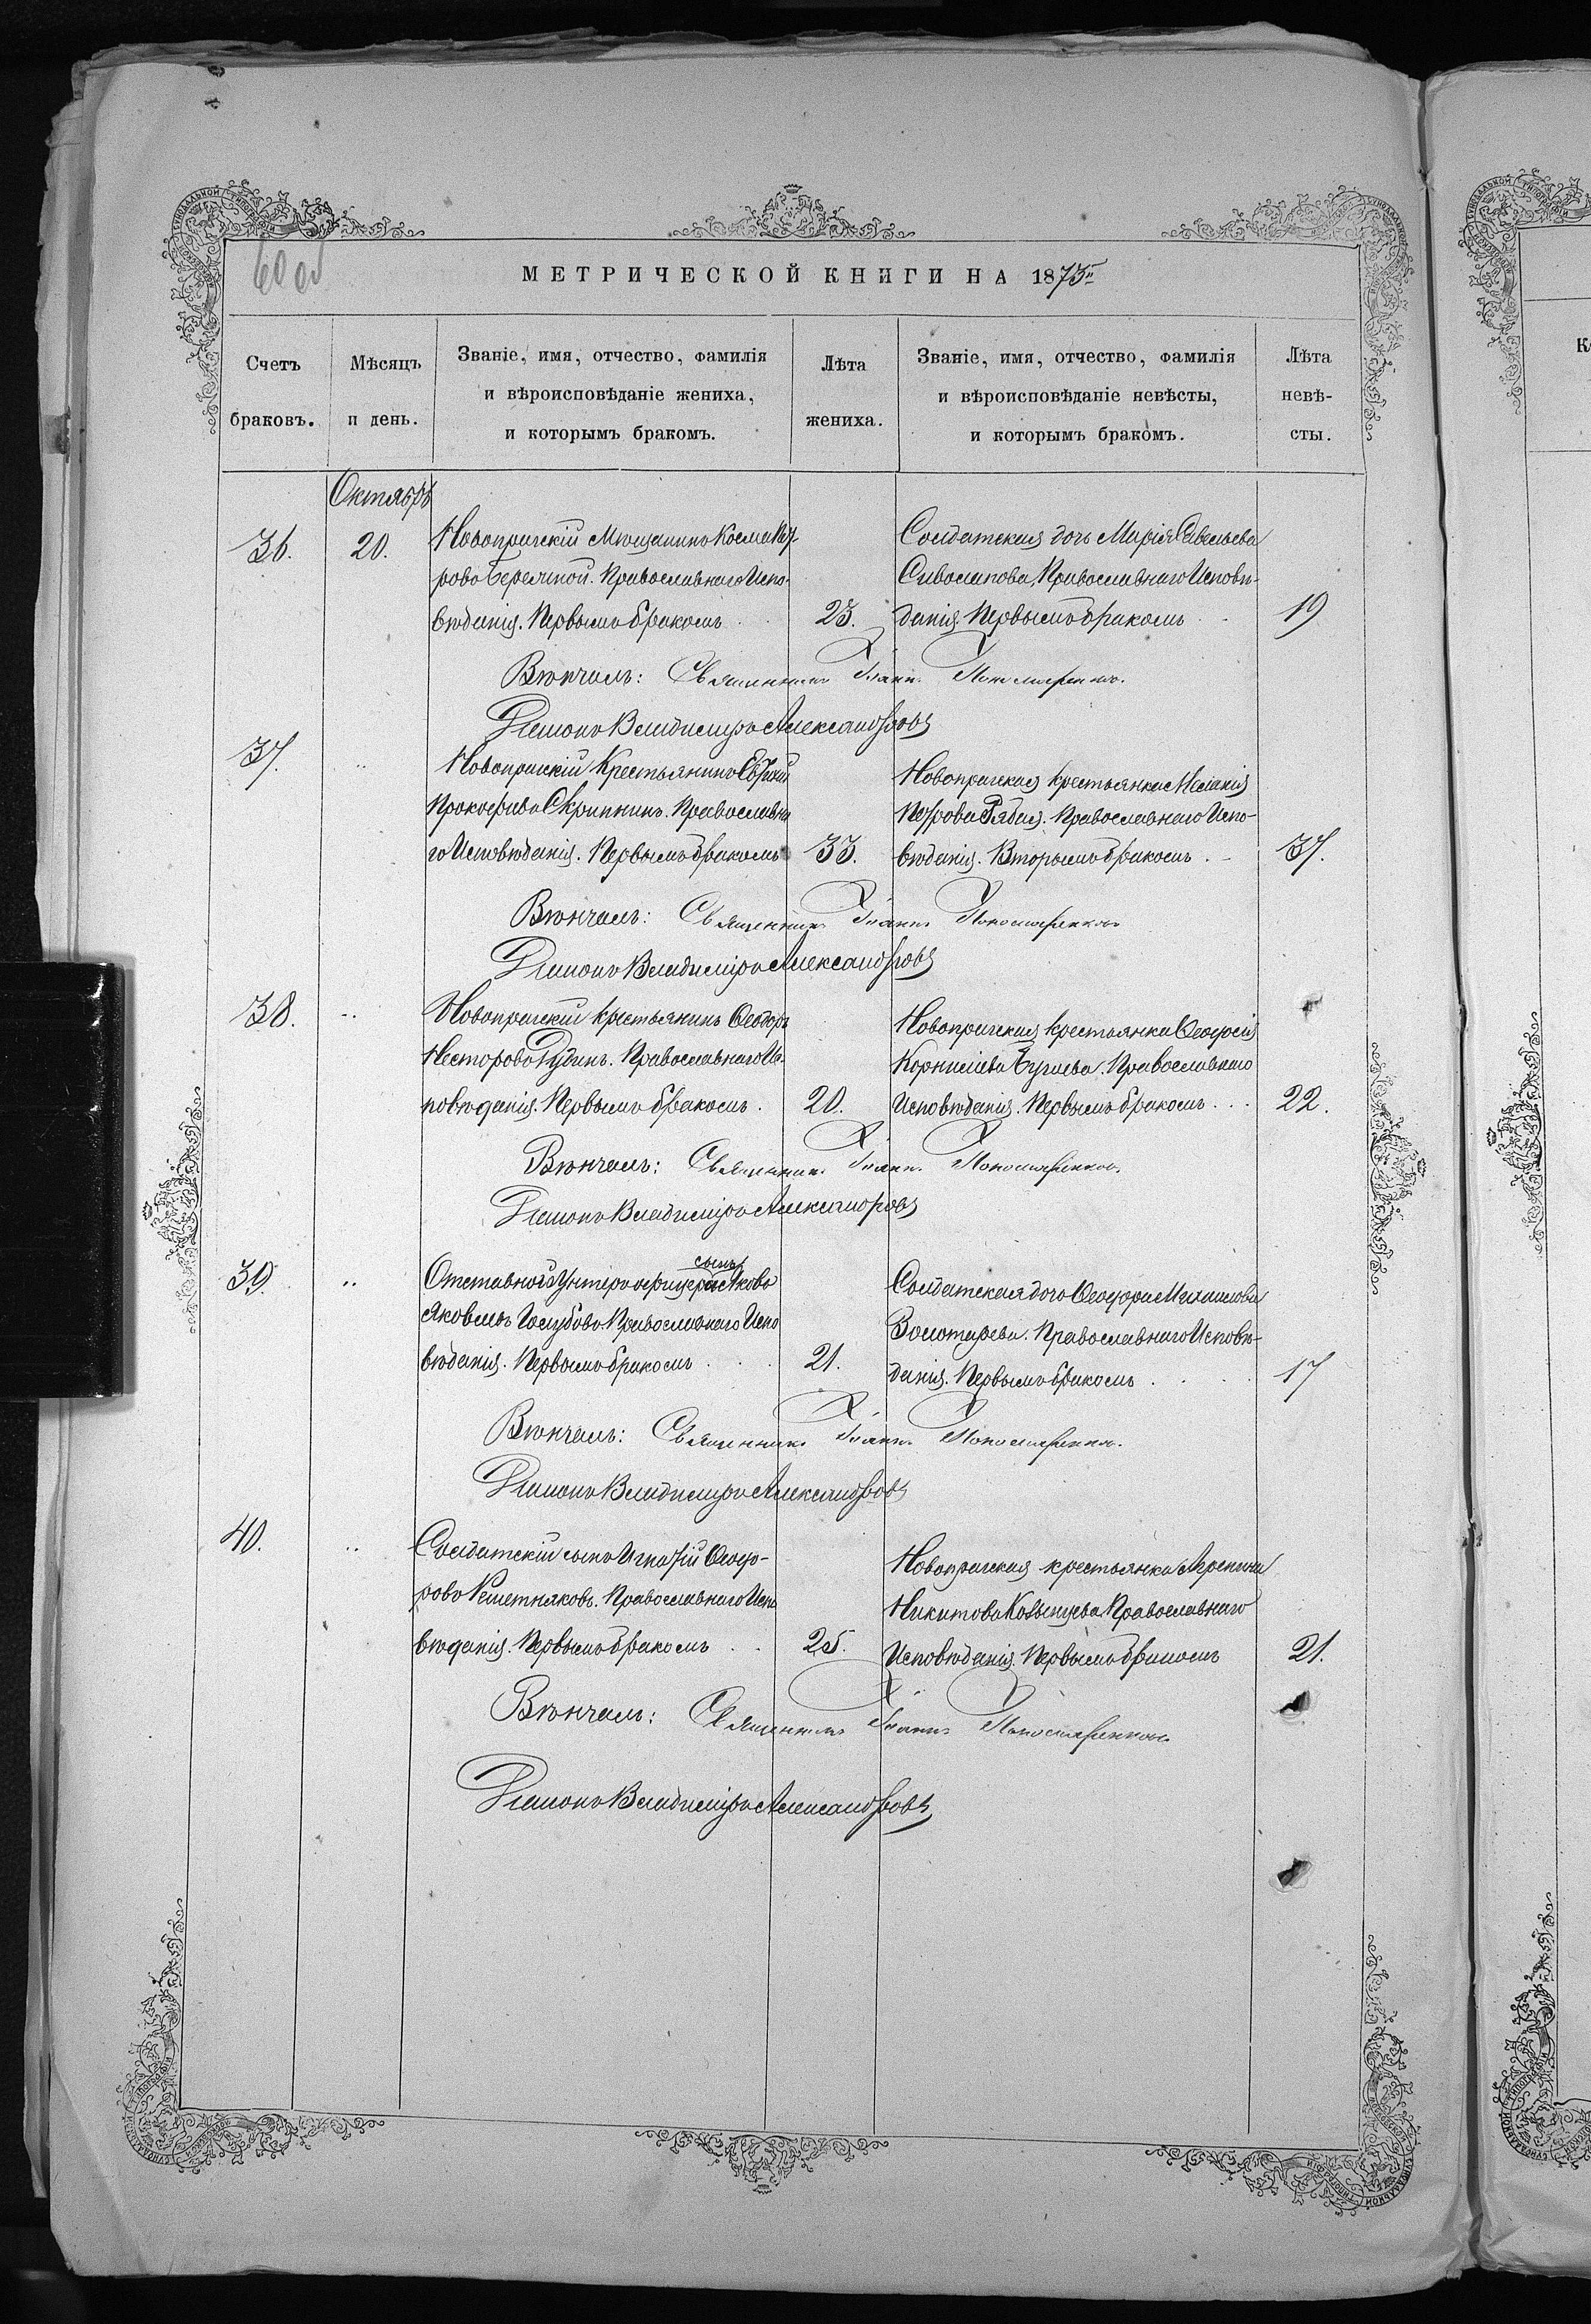 60 об
МЕТРИЧЕСКОЙ КНИГИ НА 1873
Счетъ браковъ.
Мѣсяцъ и день.
Званіе, имя, отчество, фамилія
и вѣроисповѣданіе жениха,
и которымъ бракомъ.
Лѣта жениха.
Званіе, имя, отчество, фамилія
и вѣроисповѣданіе невѣсты,
и которымъ бракомъ.
Лѣта невѣ-
сты.
Октябрь
36. 20.
Новопражскій Мѣщанинъ Косма Пет-
ровъ Православнаго Испо-
вѣданія. Первымъ бракомъ 23.
Солдатская дочь Марія Савельева
Сиволапова, Православнаго Исповѣ-
данія. Первымъ бракомъ 19
Вѣнчалъ: Священникъ Іоаннъ Пономаренко.
Діаконъ Владиміръ Александровъ
37. "
Новопражскій Крестьянинъ Евѳимій
Прокофьевъ Скрипникъ. Православна
го Исповѣданія. Первымъ бракомъ 33.
Новопражская крестьянка Меланія
Петрова Рябая. Православнаго Испо-
вѣданія. Вторымъ бракомъ 37.
Вѣнчалъ: Священникъ Іоаннъ Пономаренко
Діаконъ Владиміръ Александровъ
38. "
Новопражскій крестьянинъ Ѳеодоръ
Несторовъ Православнаго Ис-
повѣданія. Первымъ бракомъ 20.
Новопражская крестьянка Ѳеодосія
Корниліева Православнаго
Исповѣданія. Первымъ бракомъ 22.
Вѣнчалъ: Священникъ Іоаннъ Пономаренко.
Діаконъ Владиміръ Александровъ
39. "
сынъ
Отставнаго Унтеръ офицера Яковъ
Яковлевъ Голубовъ Православнаго Испо
вѣданія. Первымъ бракомъ 21.
Солдатская дочь Михаилова
Золотарева. Православнаго Исповѣ-
данія. Первымъ бракомъ 17
Вѣнчалъ: Священникъ Іоаннъ Пономаренко.
Діаконъ Владиміръ Александровъ
40. "
Солдатскій сынъ Игнатій Ѳеодо-
ровъ Решетняковъ. Православнаго Испо
вѣданія. Первымъ бракомъ 25.
Новопражская крестьянка
Никитова Православнаго
Исповѣданія. Первымъ бракомъ 21.
Вѣнчалъ: Священникъ Іоаннъ Пономаренко.
Діаконъ Владиміръ Александровъ